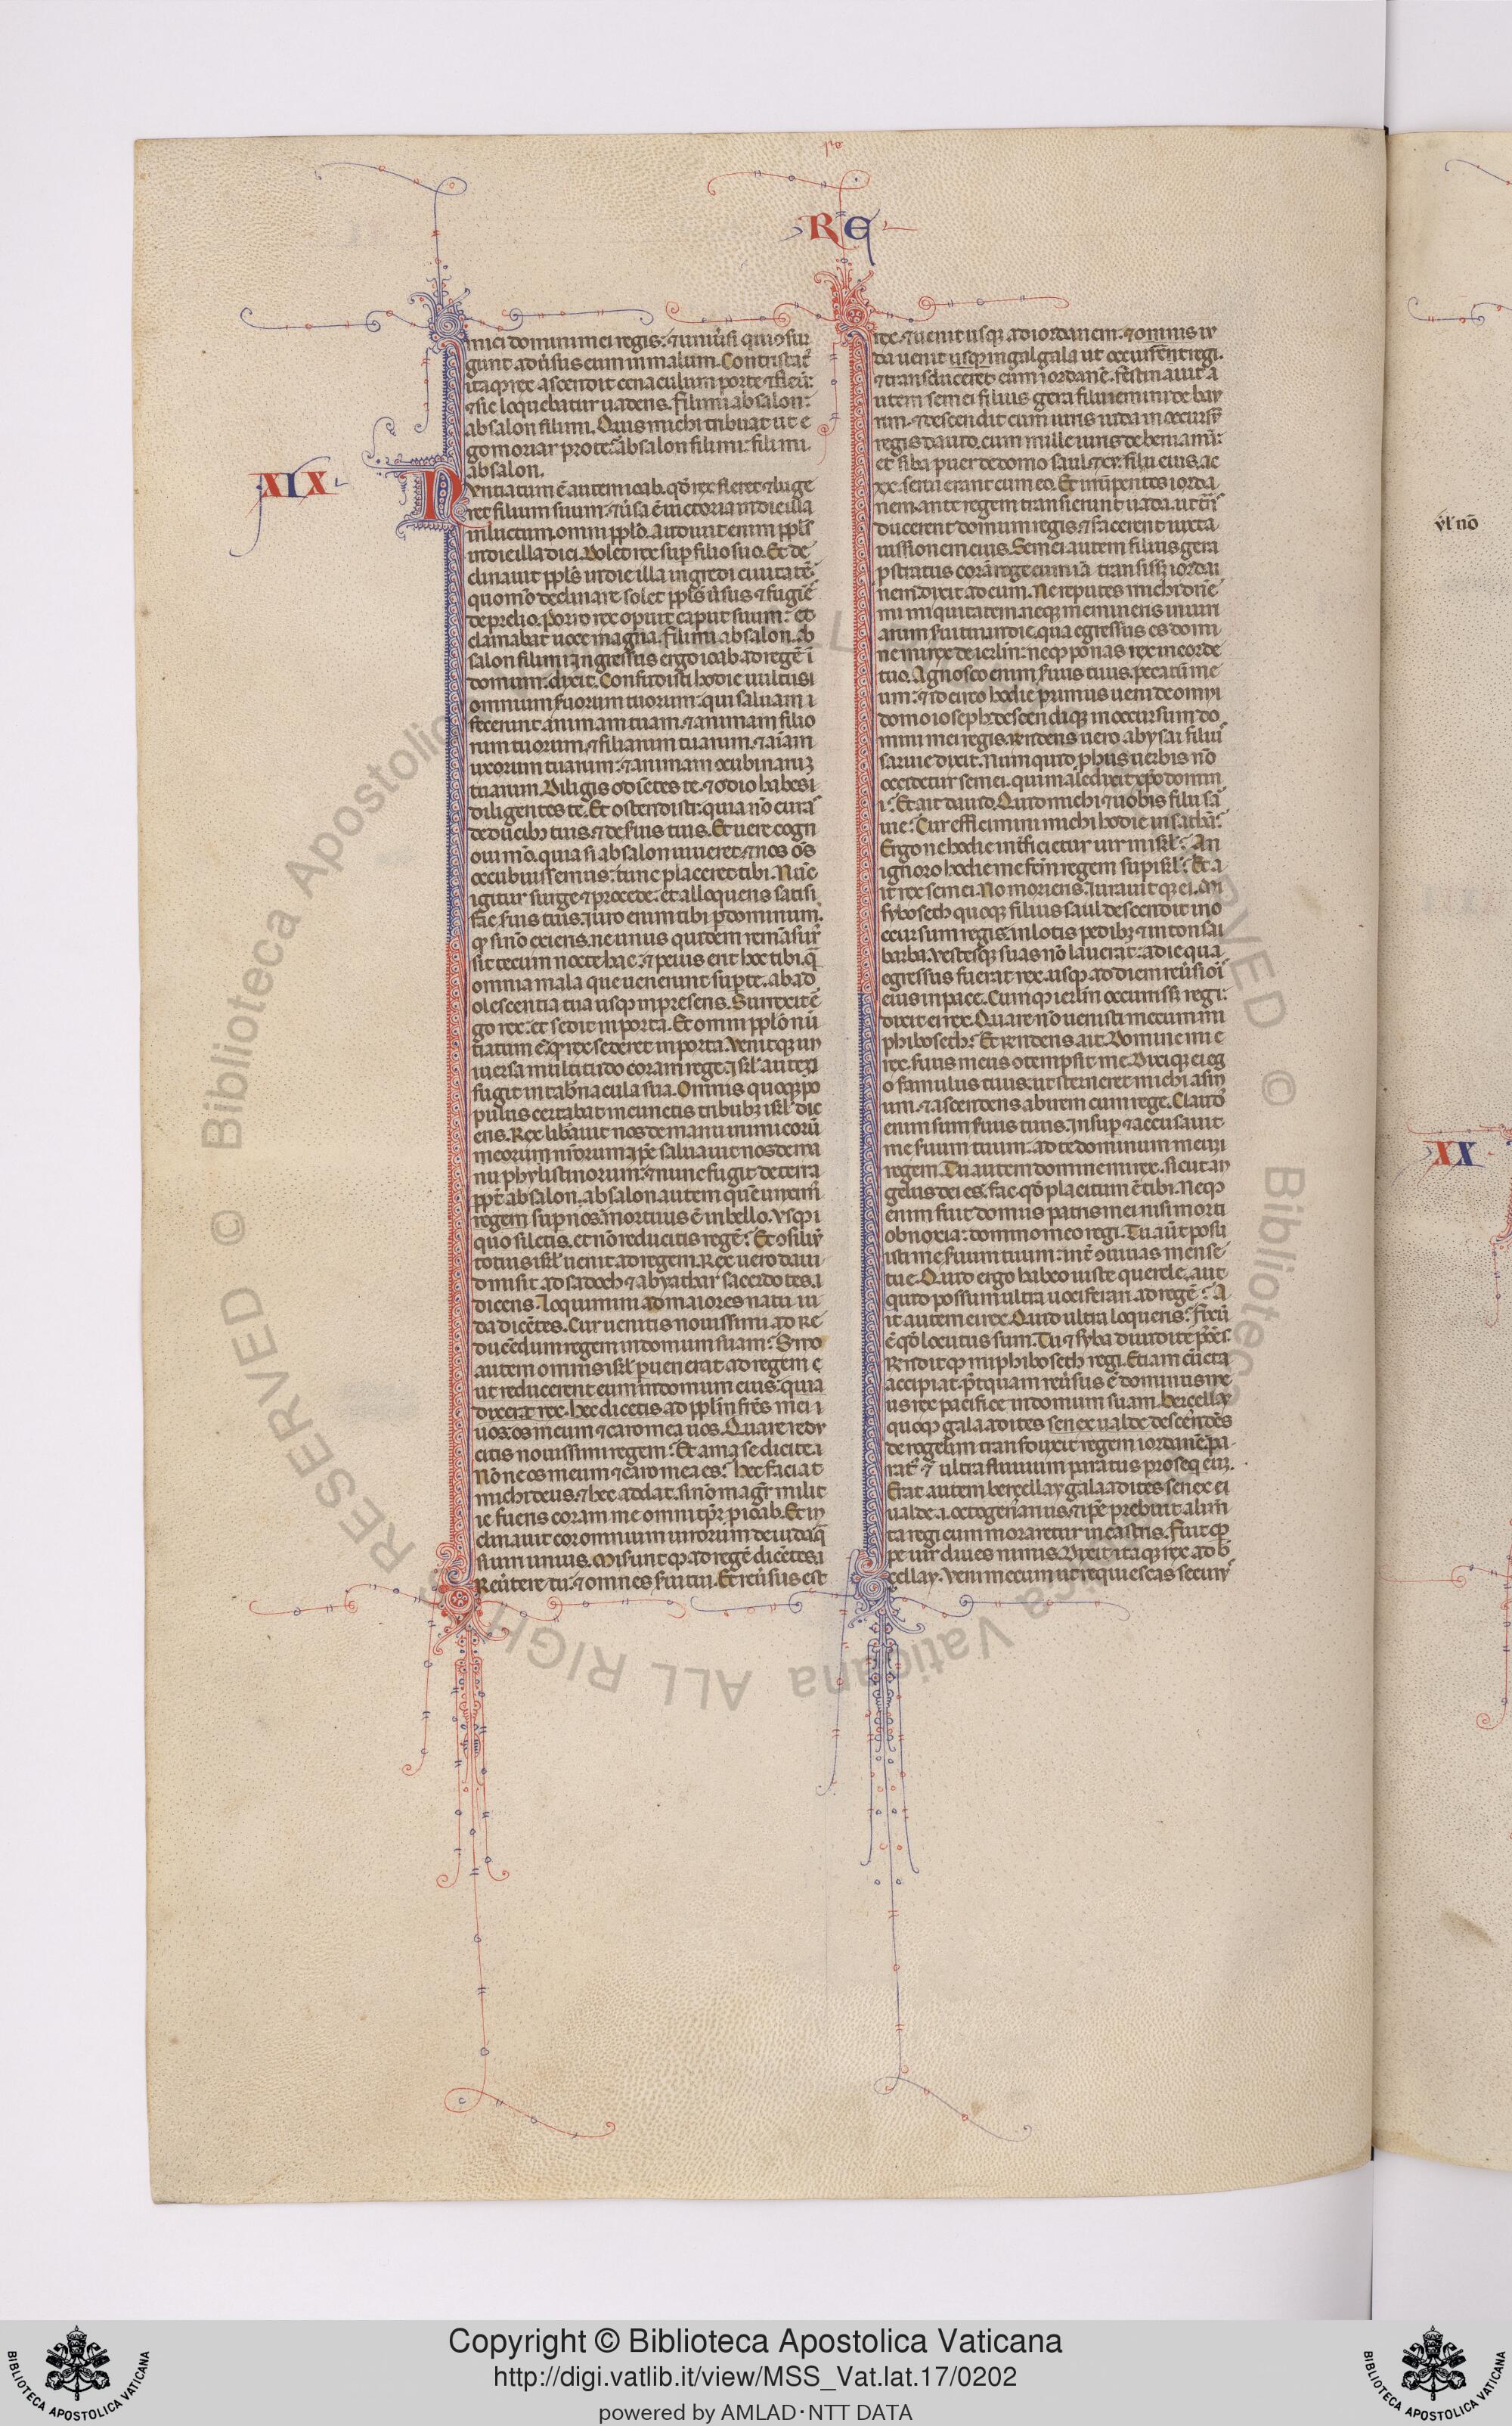 RE
mici domini mei regis: ⁊ uniũsi qui ↄsur
gunt aduˀsus eum in malum. Contristatˀ
itaqꝫ rex ascendit cenaculum porte ⁊ fleuˀ:
⁊ sic loquebatur uadens. fili mi absalon:
absalon fili mi. Quis michi tribuat ut e
go moriar pro te: absalon fili mi: fili mi
absalon.
XIX
Nuntiatum ē autem ioab. qđ rex fleret ⁊ luge
ret filium suum: ⁊ uˀsa ē uictoria in die illa
in luctum. omni pplo. Audiuit enim pplˀs
in die illa dici. Dolet rex sup filio suo. Et de
clinauit pplˀs in die illa ingredi ciuitatē:
quomo declinare solet pplˀs uˀsus ⁊ fugiēs
de prelio. Porro rex opuit caput suum: et
clamabat uoce magna. fili mi absalon. ab
salon fili mi. Ingressus ergo ioab ad regē ī
domum: dixit. Confudisti hodie uultus
omnium ẜuorum tuorum: qui saluam
fecerunt animam tuam. ⁊ animam filio
rum tuorum. ⁊ filiarum tuarum. ⁊ aīam
uxorum tuarum: ⁊ animam ↄcubinarum
tuarum. Diligis odiētes te. ⁊ odio habes
diligentes te. Et ostendisti: quia nō curas
de ducibꝫ tuis. ⁊ de ẜuis tuis. Et uere cogn
oui mō. quia si absalon uiueret. ⁊ nos oēs
occubuissemus: tunc placeret tibi. Nūc
igitur surge ⁊ procede. et alloquens satis
fac ẜuis tuis. Iuro enim tibi p dominum.
qꝫ si nō exiens. ne unus quidem remāsurˀ
sit tecum nocte hac. ⁊ peius erit hoc tibi. qˀ
omnia mala que uenerunt super te. ab ad
olescentia tua usqꝫ in presens. Surrexit e
go rex: et sedit in porta. Et omni pplo nū
tiatum ē. qꝫ rex sederet in porta. Venitqꝫ un
iuersa multitudo coram rege. Isrł autem
fugit in tabˀnacula sua. Omnis quoqꝫ po
pulus certabat in cunctis tribubꝫ isrł dic
ens. Rex libˀauit nos de manu inimicorū
meorum nr̄orum. ipˀe saluauit nos de ma
nu phylistinorum: ⁊ nunc fugit de terra
ppt̄ absalon. absalon autem quē unxim̄
regem sup nos. mortuus ē in bello. Vsqꝫ
quo siletis. et nō reducitis regē: Et ↄsiliū
totius isrł uenit ad regem. Rex uero daui
d misit ad sadoch ⁊ abyathar sacerdotes.
dicens. Loquimini ad maiores natu iu
da dicētes. Cur uenitis nouissimi ad re
ducēdum regem in domum suam: Smo
autem omnis isrł puenerat ad regem
ut reducerent eum in domum eius: quia
dixerat rex. hec dicetis ad pplm̄. frēs mei
uos. os meum ⁊ caro mea uos. Quare redu
citis nouissimi regem: Et amase dicite.
Nōne os meum ⁊ caro mea es: hec faciat
michi deus. ⁊ hec addat. si nō magrˀ milit
ie fueris coram me omni tp̄r. p ioab. Et in
clinauit cor omnium uirorum de iuda qˀ
sium unius. Miserunt qꝫ ad regē dicētes.
Reuˀtere tu: ⁊ omnes ẜui tui. Et reuˀsus est
rex. ⁊ uenit usqꝫ ad iordanem: ⁊ omnis iu
da uenit usqꝫ in galgala ut occurrēnt regi.
⁊ transduceret eum iordanē. festinauit a
utem semei filius gera filii iemini de bau
rim. ⁊ descendit cum uiris iuda in occursū
regis dauid. cum mille uiris de beniamī:
et siba puer de domo saul. ⁊ xv. filii eius. ac
xx. serui erant cum eo. Et irrūpentes iorda
nem. ante regem transierunt uada. ut trˀs
ducerent domum regis. ⁊ facerent iuxta
iussionem eius. Semei autem filius gera
pstratus corā rege cum iā transissꝫ iorda
nem. dixit ad eum. Ne reputes michi dn̄e
mi iniquitatem. neqꝫ memineris iniuri
arum ẜui tui in die. qua egressus es domi
ne mi rex de ierlm̄: neqꝫ ponas rex in corde
tuo. Agnosco enim ẜuus tuus. peccatū me
um: ⁊ idcirco hodie primus ueni de omni
domo ioseph. descendiqꝫ in occursum do
mini mei regis. respondens uero abysai filiuˀ
saruie dixit. Num quid p hiis uerbis nō
occidetur semei. qui maledixit xpo domin
i: Et ait dauid. Quid michi ⁊ uobis filii sar
uie: Cur efficimini michi hodie in sathā:
Ergo ne hodie intˀficietur uir in isrł: An
ignoro hodie me fcm̄ regem sup isrł: Et a
it rex semei. Nō morieris. Iurauitqꝫ ei. Mi
fyboseth quoqꝫ filius saul descendit in o
ccursum regis. inlotis pedibꝫ ⁊ intonsa
barba. Vestesqꝫ suas nō lauerat: a die qua
egressus fuerat rex. usqꝫ ad diem reuˀsiōi
eius in pace. Cumqꝫ ierlm̄ occurrissꝫ regi:
dixit ei rex. Quare nō uenisti mecum mi
phiboseth: Et rendens ait. Domine mi
rex. ẜuus meus ↄtempsit me. Dixiqꝫ ei eg
o famulus tuus: ut sterneret michi asin
um. ⁊ ascendens abirem cum rege. Claud
enim sum ẜuus tuus. Insup ⁊ accusauit
me ẜuum tuum: ad te dominum meum
regem. Tu autem domine mi rex. sicut an
gelus dei es. fac qđ placitum ē tibi. Neqꝫ
enim fuit domus patris mei nisi morti
obnoxia: domino meo regi. Tu aūt posu
isti me ẜuum tuum: intˀ ↄuiuas mense
tue. Quid ergo habeo iuste querele. aut
quid possum ultra uociferari ad regē: A
it autem ei rex. Quid ultra loqueris: fixū
ē qđ locutus sum. Tu ⁊ syba diuidite posˀ.
Rn̄ditqꝫ miphiboseth regi. Etiam cūcta
accipiat. p̄tquam reuˀsus ē dominus me
us rex pacifice in domum suam. bercellay
quoqꝫ galaadites senex ualde descendēs
de rogelim transduxit regem iordanē. pa
ratˀ ⁊ ultra fluuium paratus prosequi eum.
Erat autem bercellay galaadites senex
ualde. i. octogenˀarius. ⁊ ipˀe prebuit alim̄
ta regi cum moraretur in castris. fuit qꝫ
pe uir diues nimis. Dixit itaqꝫ rex ad bˀ
cellay. Veni mecum ut requiescas secuꝰ
XX
Copyright © Biblioteca Apostolica Vaticana
http://digi.vatlib.it/view/MSS_Vat.lat.17/0202
powered by AMLAD·NTT DATA